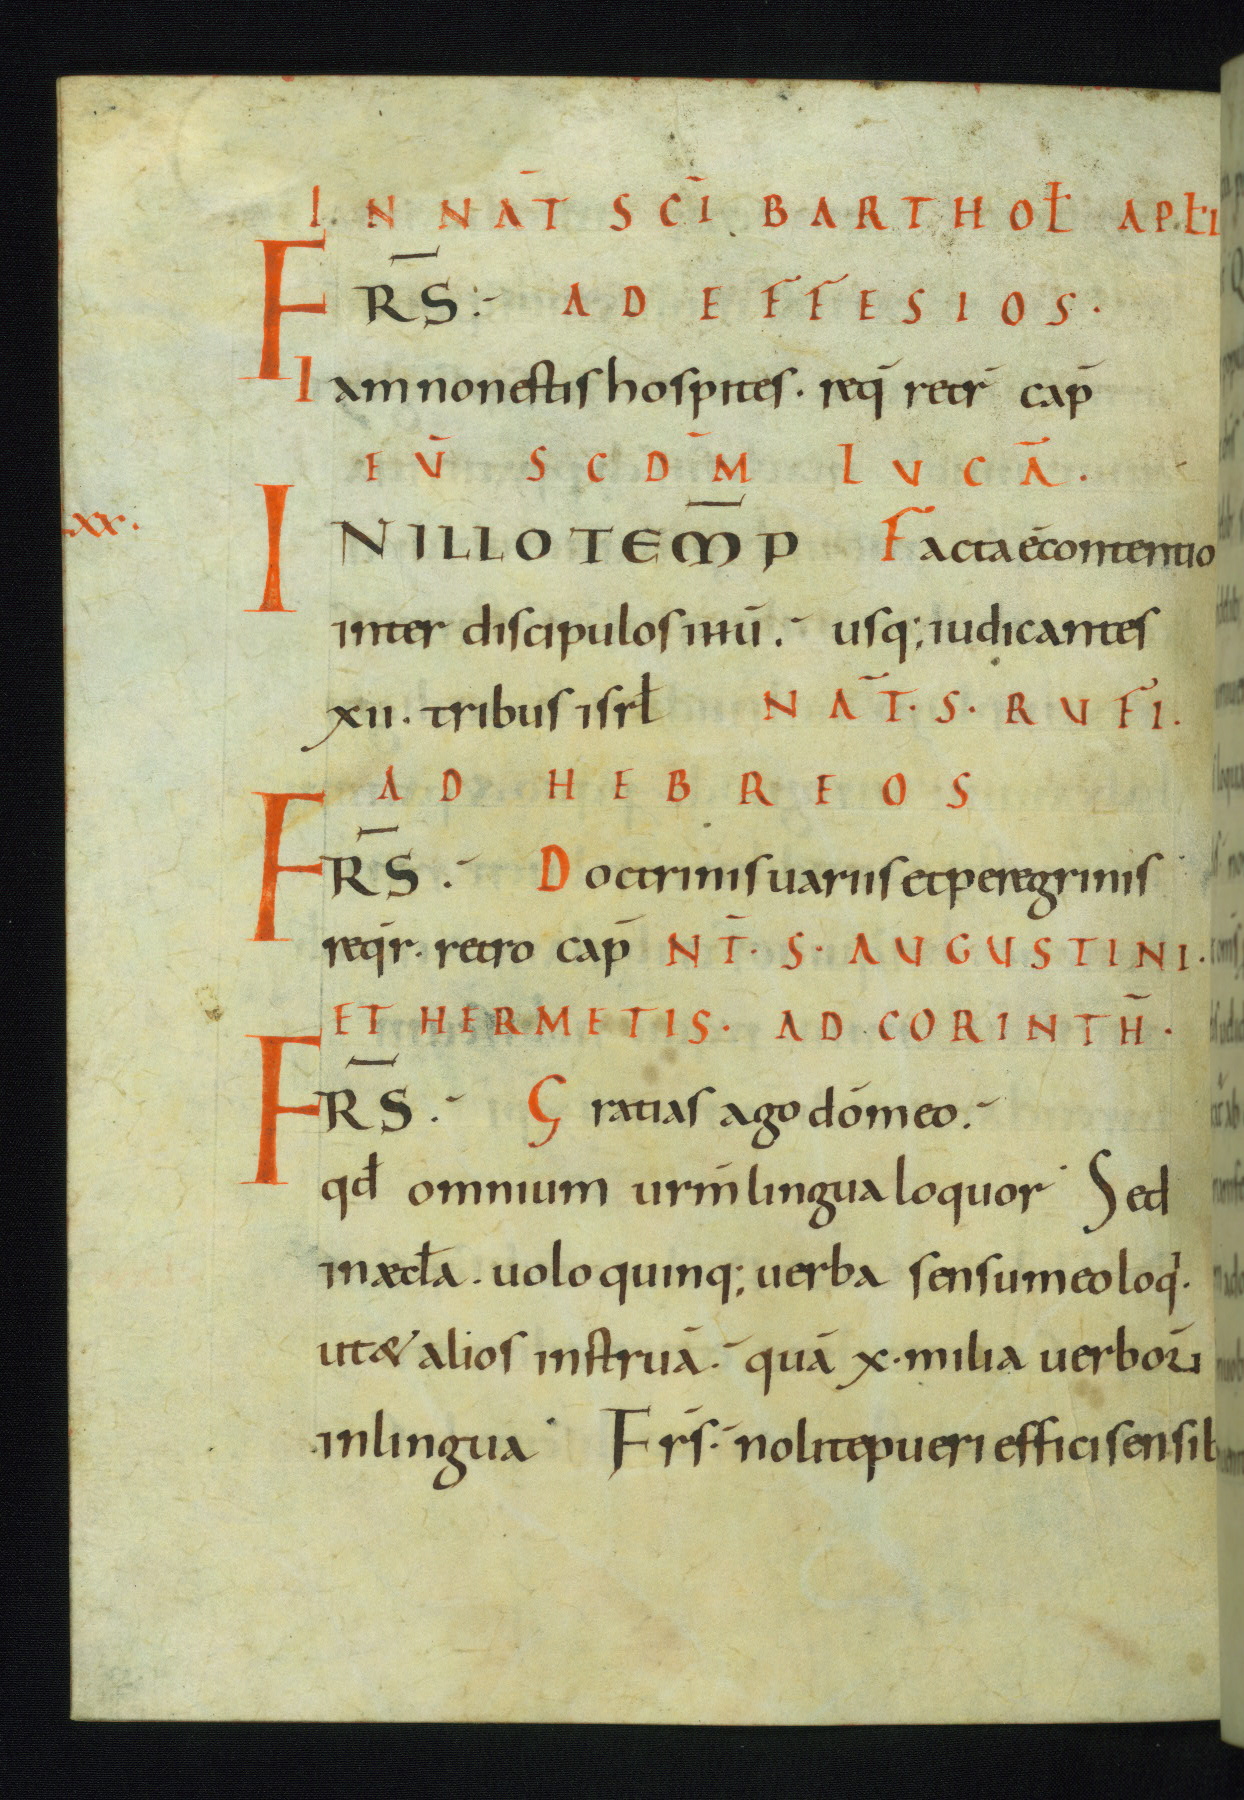 IN NAT̄ SCĪ BARTHOŁ APŁI
FR̄S:- AD EFFESIOS.
Iam non estis hospites. req̄ retr̄ cap̄
EŪ SCDM̄ LUCĀ.
xx.
IN ILLO TEM̄P Facta ē contentio
inter discipulos iħū.- usq; iudicantes
xii. tribus isrł NAT̄. S. RUFI.
AD HEBREOS
FR̄S.- Doctrinis uariis et peregrinis
req̄r. retro cap̄ NT̄. S. AUGUSTINI.
ET HERMETIS. AD CORINTH̄.
FR̄S.- Gratias ago dō meo.-
qđ omnium urm̄ lingua loquor. Sed
in æcła. uolo quinq; uerba sensu meo loq'.
ut & alios instruā.- quā x. milia uerboꝝ
in lingua. Fr̄s.- nolite pueri effici sensib